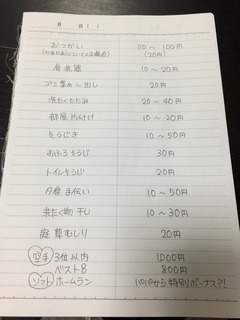 月 日( )
おつかい 50 ~ 100円
(かあかあについていく場合) (20円)
食洗器 10 ~ 20円
ゴミ集め ~ 出し 20円
洗たくたたみ 20 ~ 40円
部屋片付け 10 ~ 20円
そうじき 10 ~ 50円
おふろそうじ 30円
トイレそうじ 20円
夕食手伝い 10 ~ 50円
洗たく物干し 10 ~ 30円
庭草むしり 20円
空手 3位以内 1000円
ベスト8 800円
ソフト ホームラン パパから特別ボーナス?!